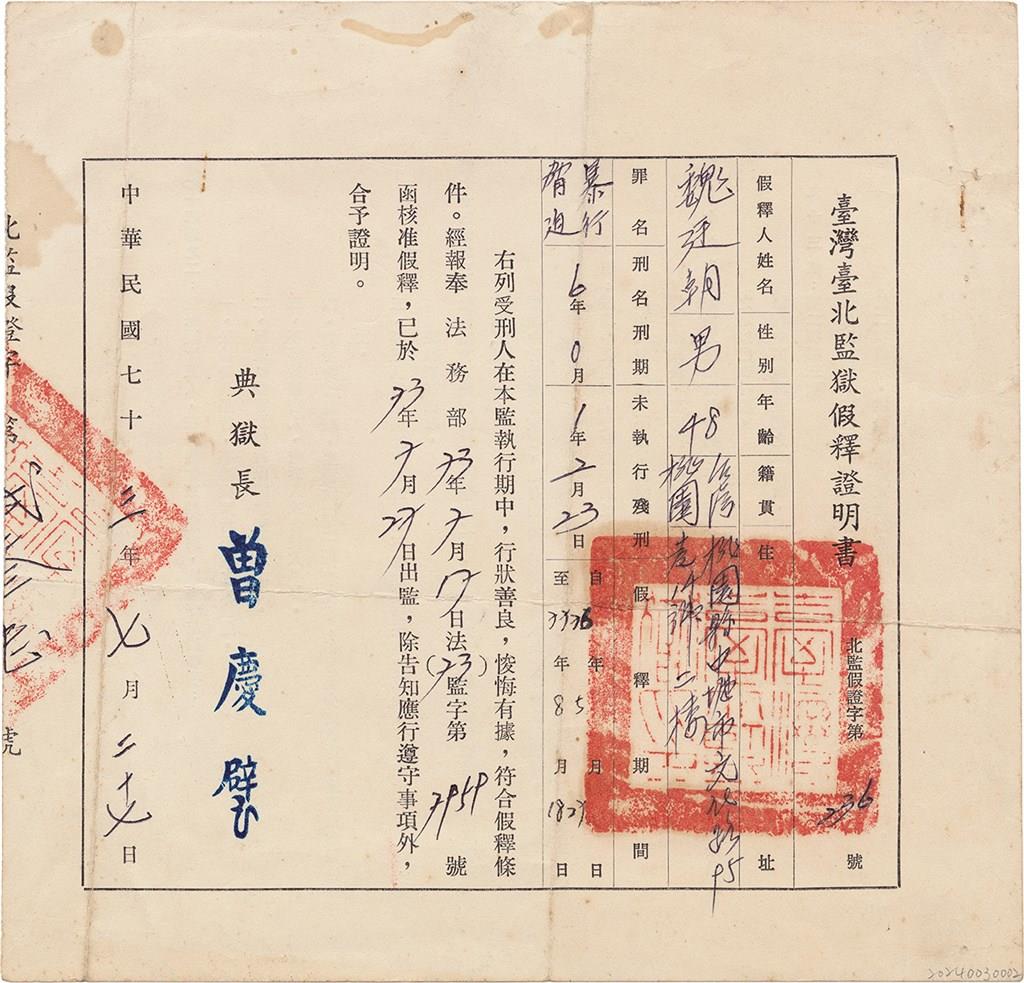 臺灣臺北監獄假釋證明書
北監假證字第236號
假釋人姓名 性別 年齡 籍貫 住址
魏廷朝 男 48 台灣桃園 桃園縣中壢市元化路95
巷 號二樓
罪名 刑名刑期 未執行殘刑 假釋期間
暴行脅迫 6年0月 1年2月23日 自 年5月27日
至 年8月18日
右列受刑人在本監執行期中，行狀善良，悛悔有據，符合假釋條
件。經報奉 法務部73年7月17日法(73)監字第7959號
函核准假釋，已於73年7月27日出監，除告知應行遵守事項外，
合予證明。
典獄長 曾慶璧
中華民國七十三年七月二十七日
北監假證字第 號
20240030002